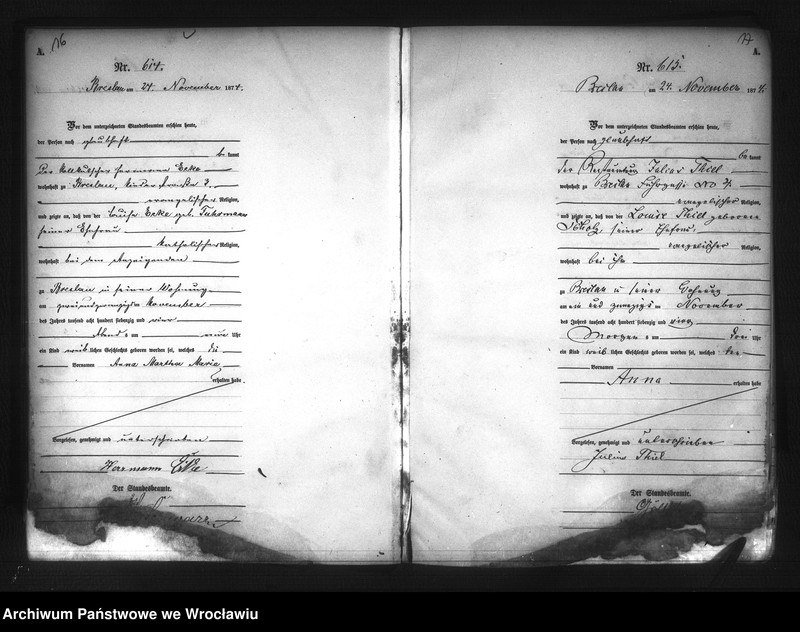 A. 76
Nr. 614.
Breslau am 24. November 1874.
Vor dem unterzeichneten Standesbeamten erschien heute,
der Person nach
be kannt
Hermann Ecke
wohnhaft zu Breslau,
evangelischer Religion,
und zeigte an, daß von der Louise Ecke geb. Fuhrmann
seiner Ehefrau
katholischer Religion,
wohnhaft bei dem Anzeigenden
zu Breslau in seiner Wohnung
am zweiundzwanzigsten November
des Jahres tausend acht hundert siebenzig und vier
Abends um neun Uhr
ein Kind weib lichen Geschlechts geboren worden sei, welches die
Vornamen Anna Martha Maria
erhalten habe.
Vorgelesen, genehmigt und unterschrieben
Hermann Ecke
Der Standesbeamte.
77
A.
Nr. 615.
Breslau am 24. November 1874.
Vor dem unterzeichneten Standesbeamten erschien heute,
der Person nach
be kannt
der Restaurateur Julius Thiel
wohnhaft zu Breslau
evangelischer Religion,
und zeigte an, daß von der Louise Thiel geborene
Scholz, seiner Ehefrau,
evangelischer Religion,
wohnhaft bei ihm
zu Breslau in seiner Wohnung
am ein und zwanzigsten November
des Jahres tausend acht hundert siebenzig und vier
Morgens um drei Uhr
ein Kind weib lichen Geschlechts geboren worden sei, welches den
Vornamen
Anna erhalten habe
Vorgelesen, genehmigt und unterschrieben
Julius Thiel
Der Standesbeamte.
Archiwum Państwowe we Wrocławiu